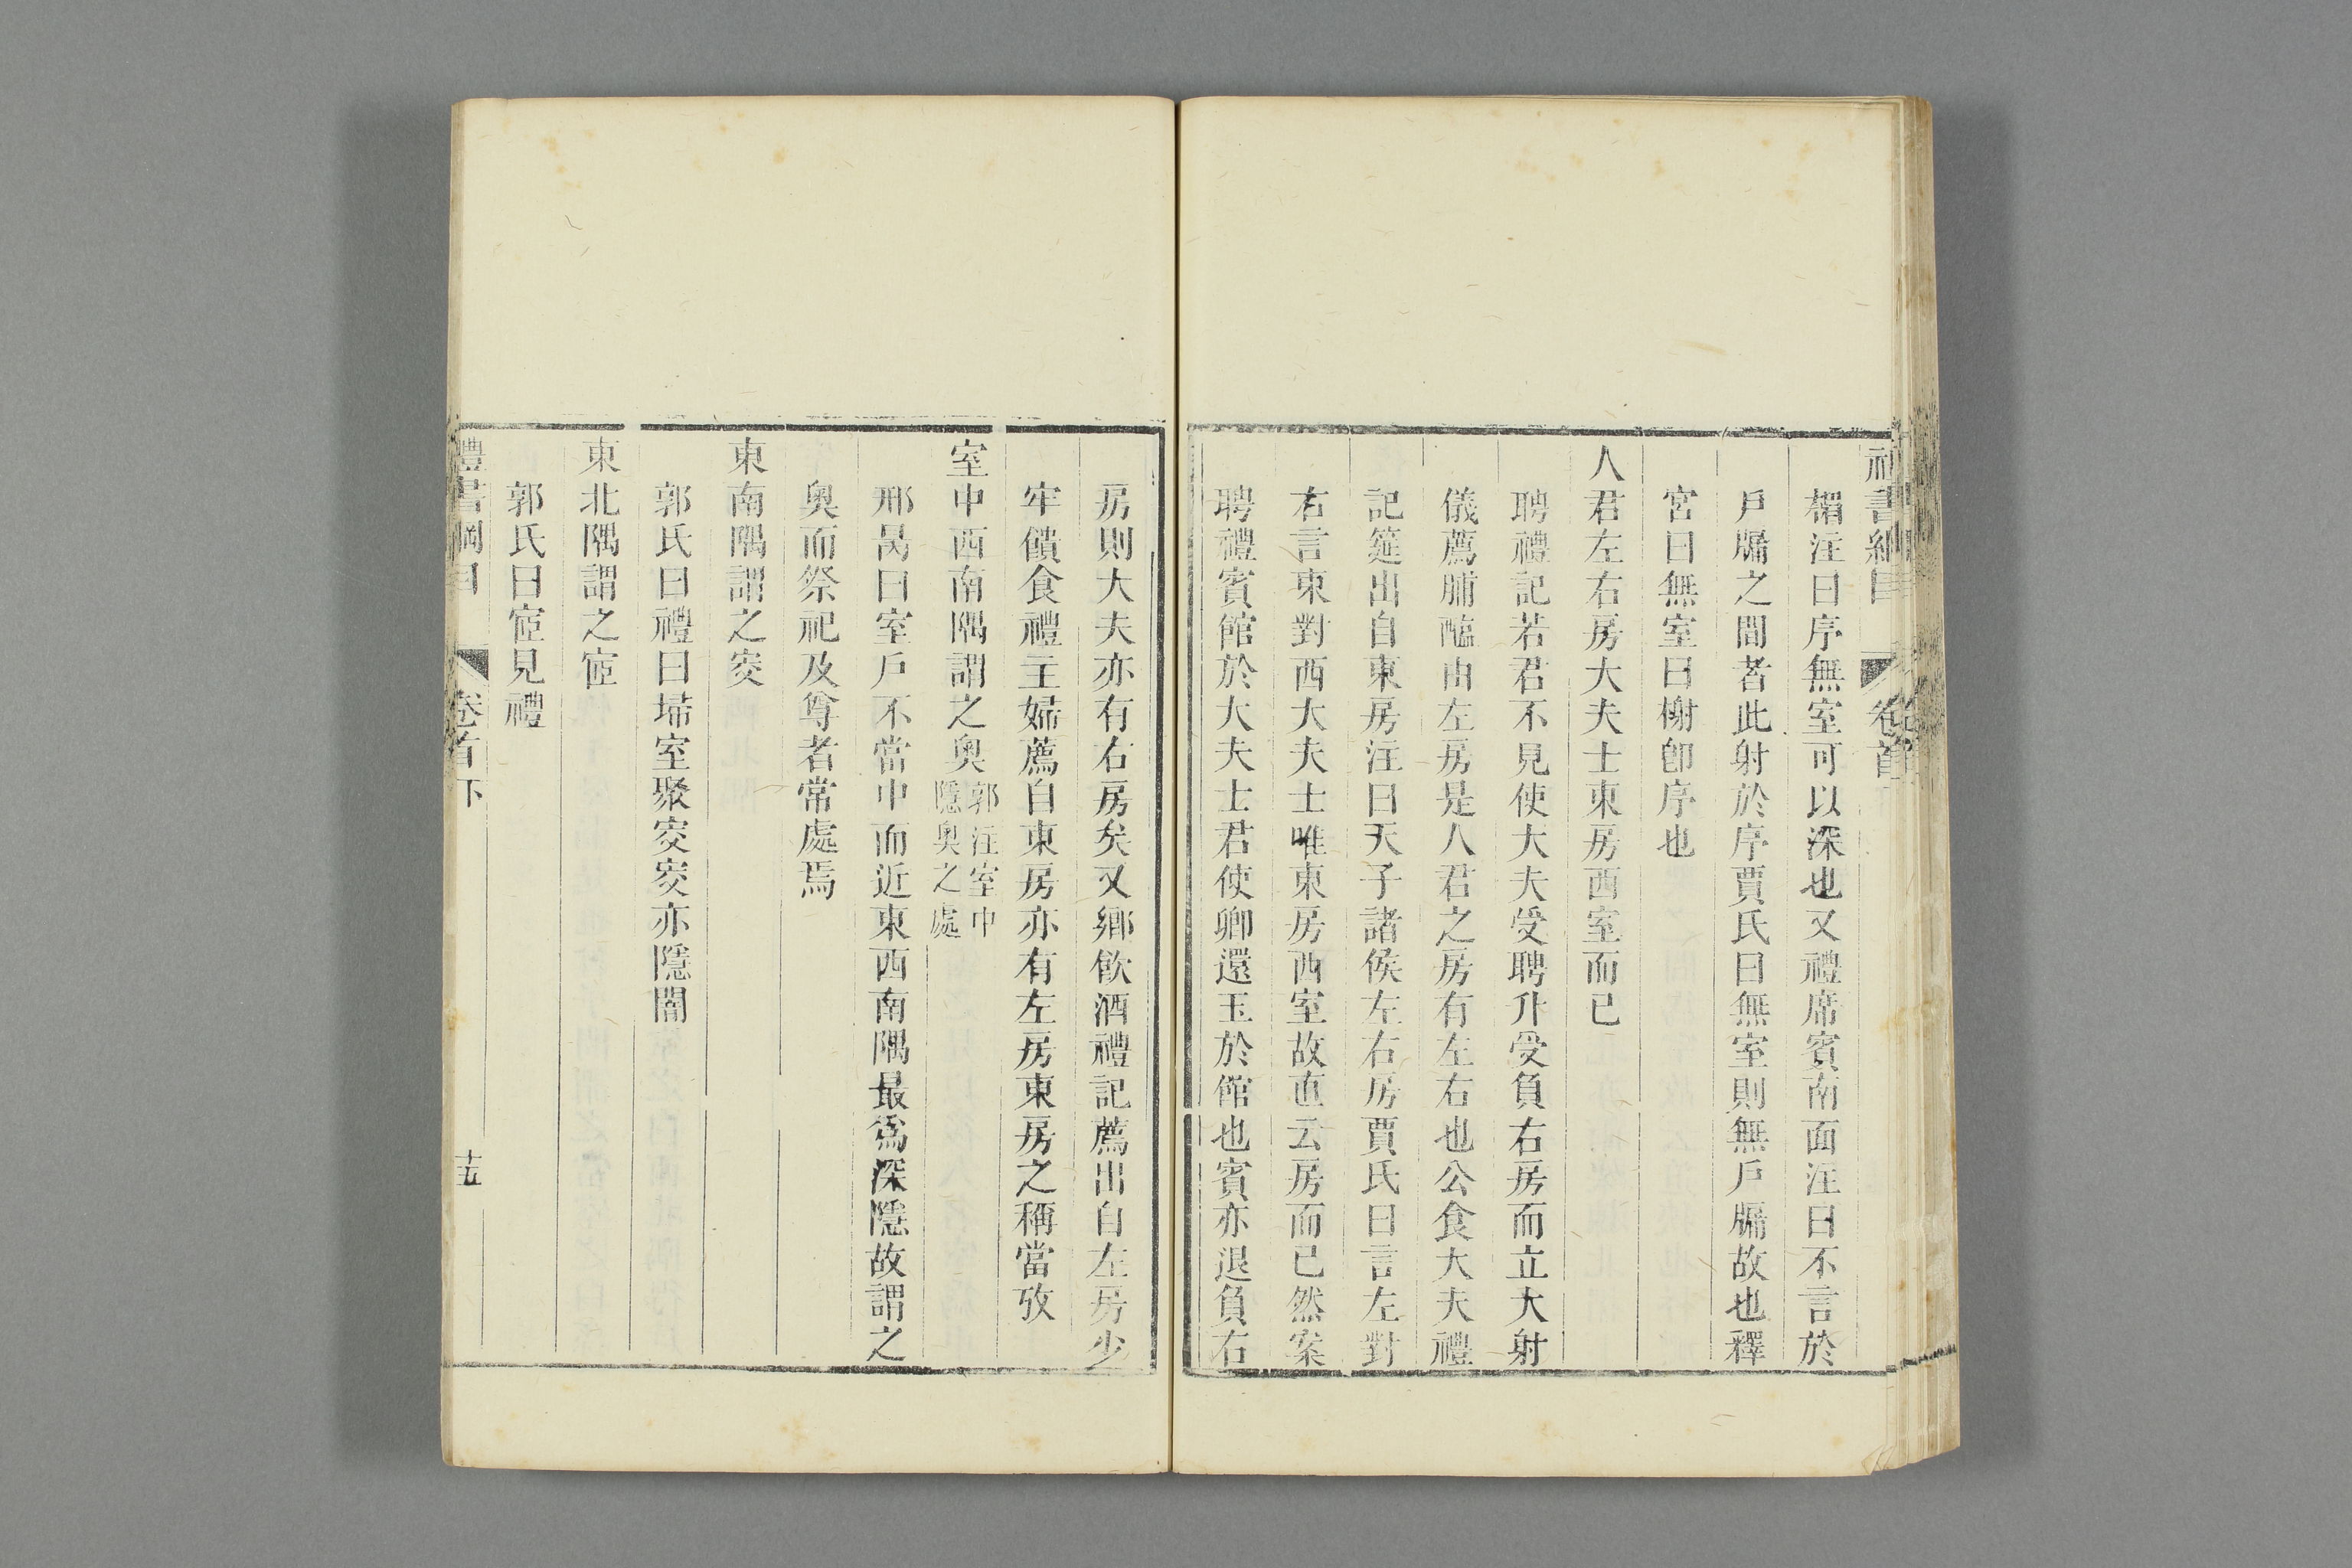 楣注曰序無室可以深也又禮席賓南面注曰不言於
戶牖之間者此射於序賈氏曰無室則無戶牖故也釋
宮曰無室曰榭卽序也
人君左右房大夫士東房西室而已
聘禮記若君不見使大夫受聘升受負右房而立大射
儀薦脯醢由左房是人君之房有左右也公食大夫禮
記筵出自東房注曰天子諸侯左右房賈氏曰言左對
右言東對西大夫士唯東房西室故直云房而已然案
聘禮賓館於大夫士君使卿還玉於館也賓亦退負右
房則大夫亦有右房矣又鄉飮酒禮記薦出自左房少
牢饋食禮主婦薦自東房亦有左房東房之稱當攷
室中西南隅謂之奧郭注室中
隱奧之處
邢昺曰室戶不當中而近東西南隅最爲深隱故謂之
奧而祭祀及尊者常處焉
東南隅謂之窔
郭氏曰禮曰埽室聚窔窔亦隱闇
東北隅謂之宧
郭氏曰宧見禮
禮書綱目 卷首下 十五